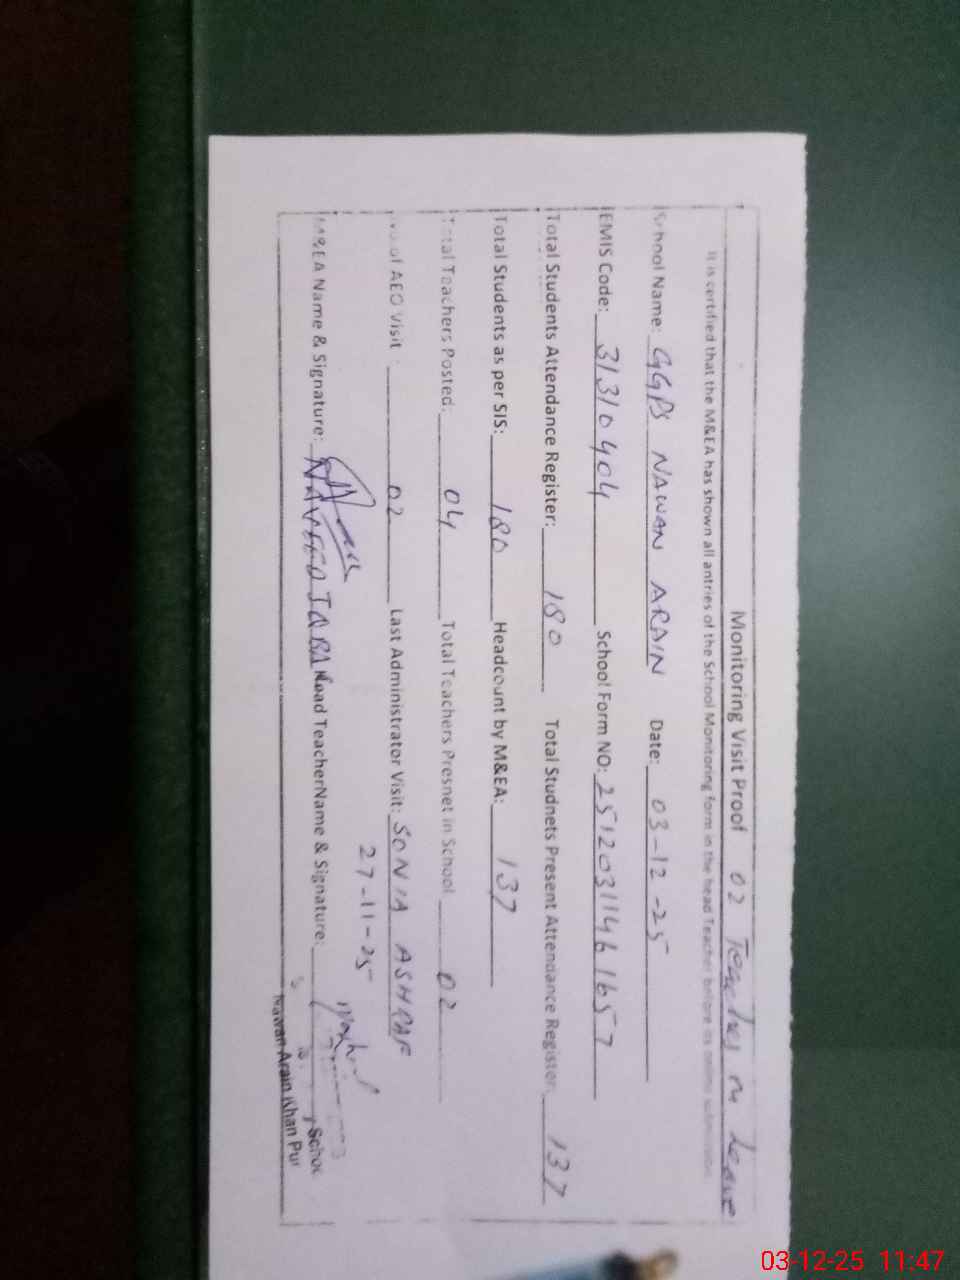 Monitoring Visit Proof 02 Teachers on Leave
It is certified that the M&EA has shown all antries of the School Monitoring form in the head Teacher before its online submission
School Name: GGPS NAWAN ARAIN Date: 03-12-25
EMIS Code: 31310404 School Form NO: 25120311461657
Total Students Attendance Register: 180 Total Studnets Present Attendance Register: 137
Total Students as per SIS: 180 Headcount by M&EA: 137
Total Teachers Posted: 04 Total Teachers Presnet in School 02
No of AEO Visit : 02 Last Administrator Visit: SONIA ASHRAF
27-11-25
M&EA Name & Signature: NAVEED IQBAL Head TeacherName & Signature:
Schoo
Nawan Arain Khan Pur
03-12-25 11:47